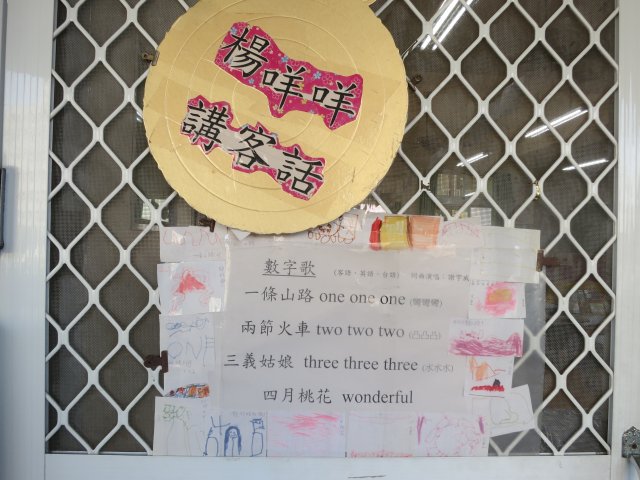 楊咩咩
講客話
數字歌 (客語、英語、台語) 詞曲演唱：謝宇威
一條山路 one one one (彎彎彎)
兩節火車 two two two (凸凸凸)
三義姑娘 three three three (水水水)
四月桃花 wonderful